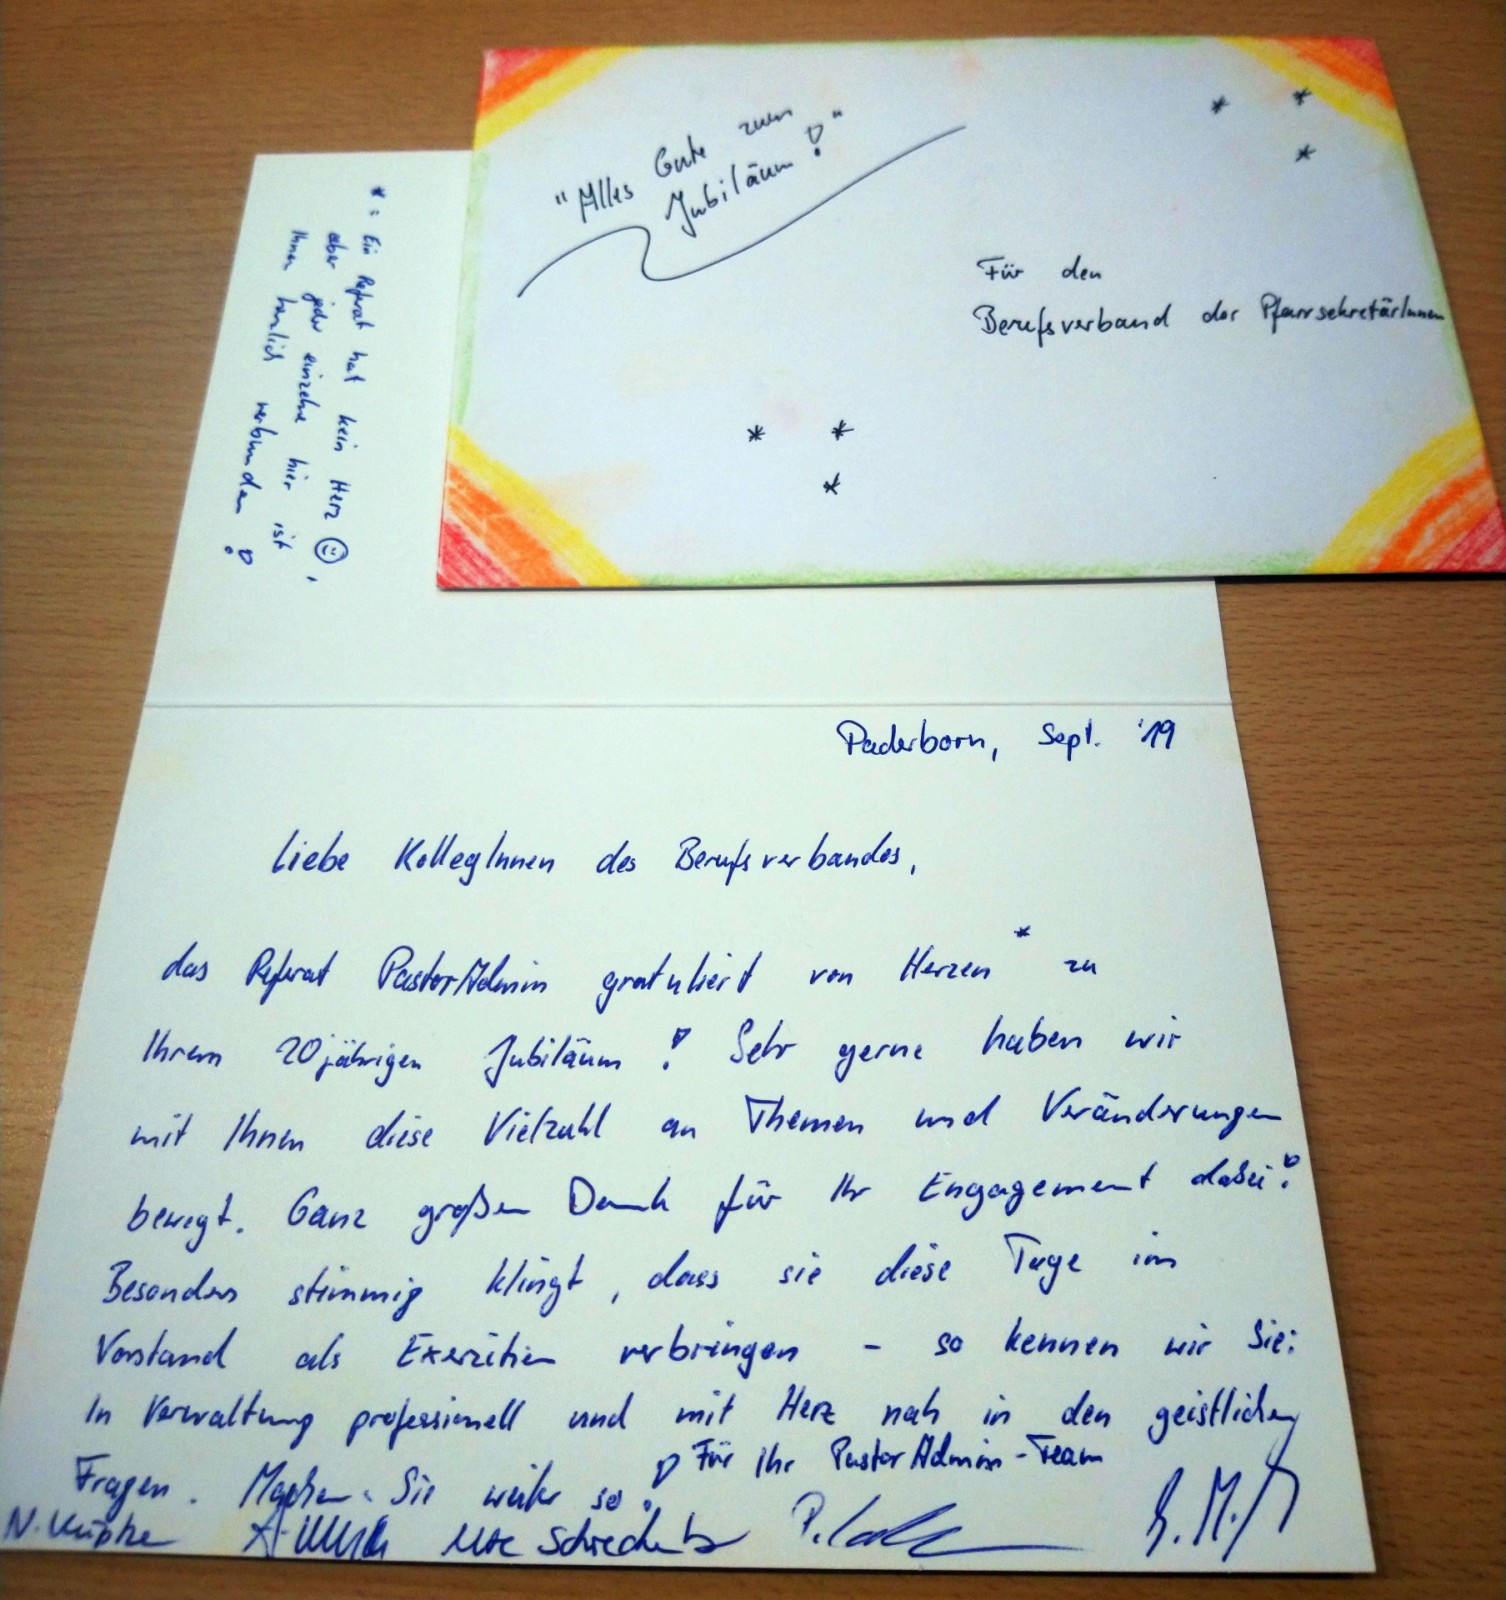 "Alles Gute zum
Jubiläum!"
Für den
Berufsverband der PfarrsekretärInnen
* = Ein Referat hat kein Herz ☺,
aber jeder einzelne hier ist
Ihnen herzlich verbunden!
Paderborn, Sept. '19
Liebe KollegInnen des Berufsverbandes,
das Referat PastorAdmin gratuliert von Herzen* zu
Ihrem 20jährigen Jubiläum! Sehr gerne haben wir
mit Ihnen diese Vielzahl an Themen und Veränderungen
bewegt. Ganz großen Dank für Ihr Engagement dabei!
Besonders stimmig klingt, dass sie diese Tage im
Vorstand als Exerzitien verbringen - so kennen wir Sie:
In Verwaltung professionell und mit Herz nah in den geistlichen
Fragen. Machen Sie weiter so! Für Ihr PastorAdmin-Team
N. Ute